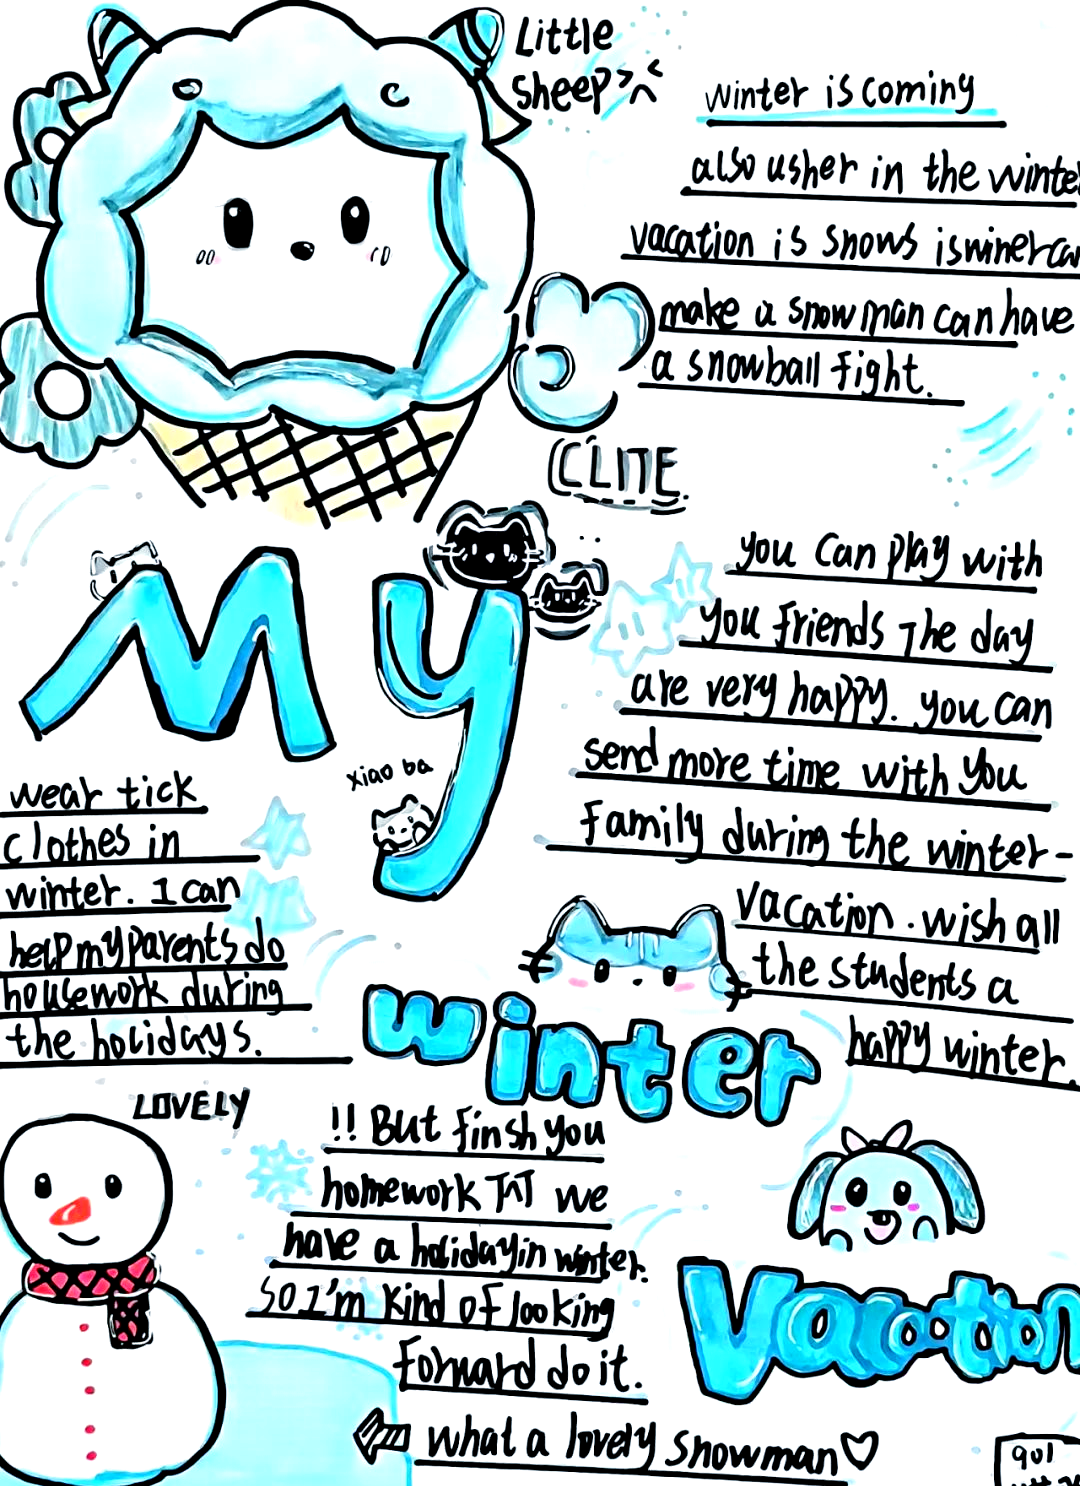 Little
Sheep
winter is coming
also usher in the winte
vacation is snows
make a snowman can have
a snowball fight.
CLITE
you can play with
you friends The day
are very happy. you can
send more time with you
family during the winter-
vacation. wish all
the students a
happy winter.
My
xiao ba
wear tick
clothes in
winter. I can
help my parents do
housework during
the holidays.
winter
LOVELY
!! But finsh you
homework TAT we
have a holiday in winter.
so I'm kind of looking
forward do it.
what a lovely snowman
Vacation